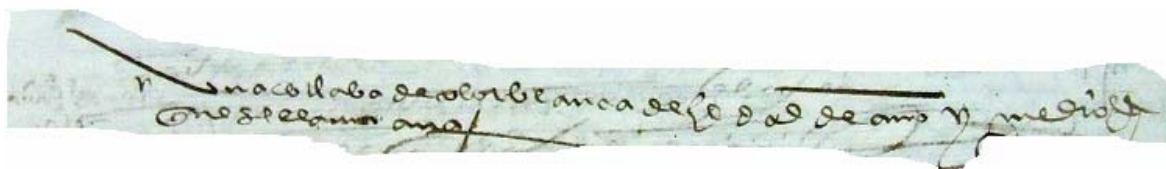 y una esclaba de color blanca de hedad de año y medio
que se llama ana